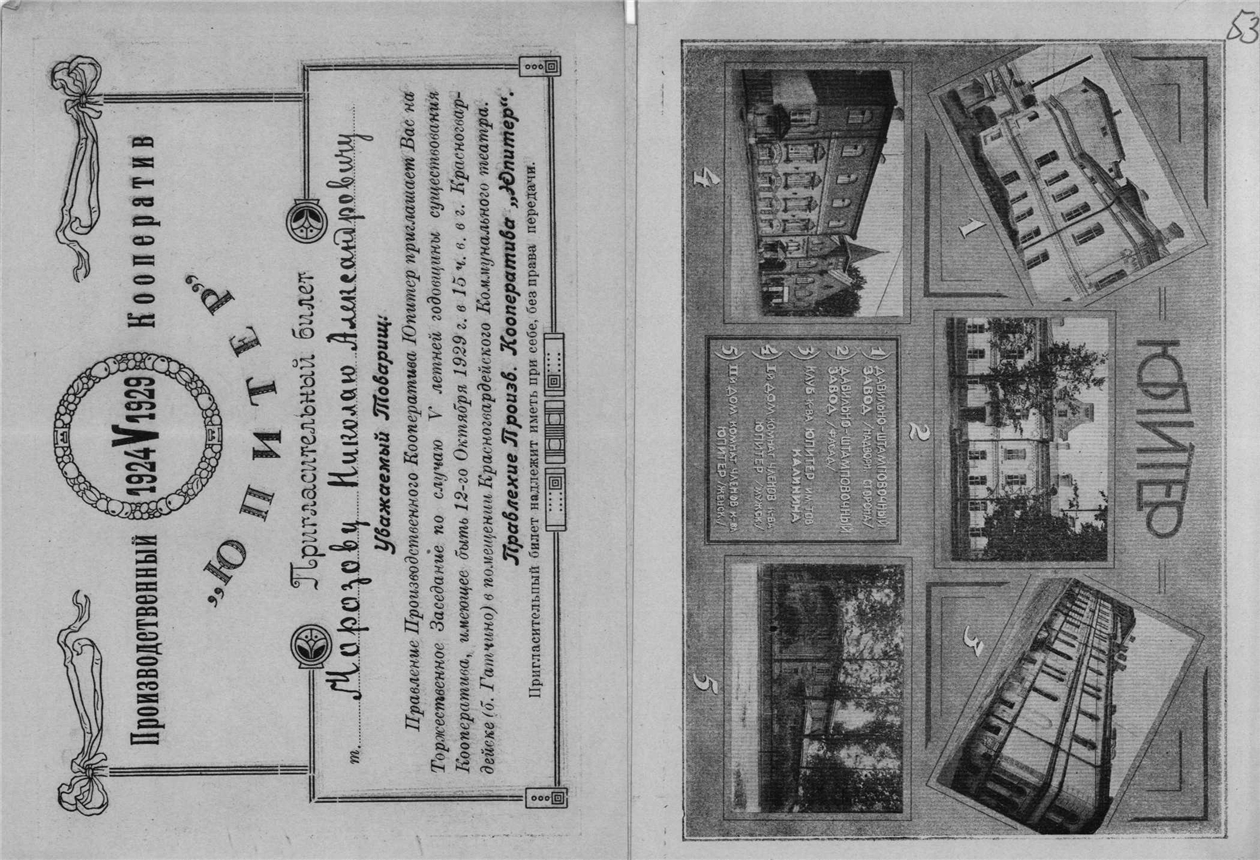 Производственный 1924 V 1929 Кооператив
„ЮПИТЕР“
Пригласительный билет
т. Морозову Николаю Александровичу
Уважаемый Товарищ:
Правление Производственного Кооператива Юпитер приглашает Вас на
Торжественное Заседание по случаю V летней годовщины существования
Кооператива, имеющее быть 12-го Октября 1929 г. в 15 ч. в. в г. Красногвар-
дейске (б. Гатчино) в помещении Красногвардейского Коммунального театра.
Правление Произв. Кооператива „Юпитер“.
Пригласительный билет надлежит иметь при себе, без права передачи.
53
ЮПИТЕР
1
2
3
4
5
1) ДАВИЛЬНО-ШТАМПОВОЧНЫЙ
ЗАВОД СТОРОНЫ/
2) ДАВИЛЬНО-ШТАМПОВОЧНЫЙ
ЗАВОД /ФАСАД/
3) КЛУБ К-ВА ЮПИТЕР ИМ. ТОВ
КАЛИНИНА
4) ДОМ ЧЛЕНОВ К-ВА
ЮПИТЕР /МУЖСК/
5) ДОМ ЧЛЕНОВ К-ВА
ЮПИТЕР /ЖЕНСК/